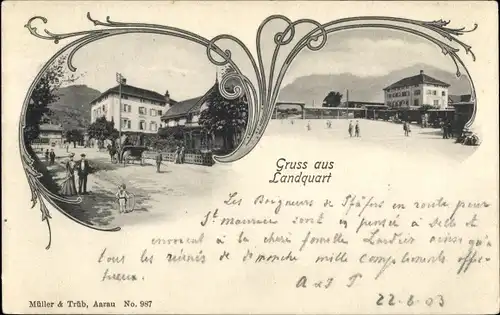 Gruss aus
Landquart
Les Baigneurs de Ptäfers en route pour
St maurice sont en pensée à Selle et
envoient à la chère famille Lardier ainsi qu'à
tous les réunis de dimanche mille compliments affec-
tueux.
22-6-03
Müller & Trüb, Aarau No. 987